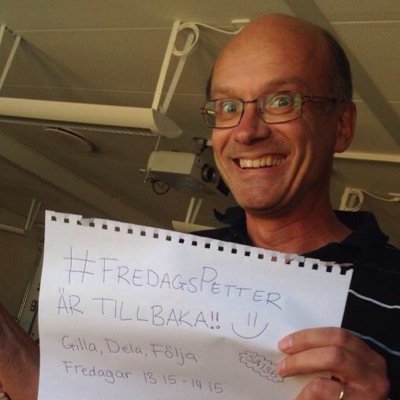 #FREDAGSPETTER
ÄR TILLBAKA!!
Gilla, Dela, Följa
SA136
Fredagar 13.15-14.15